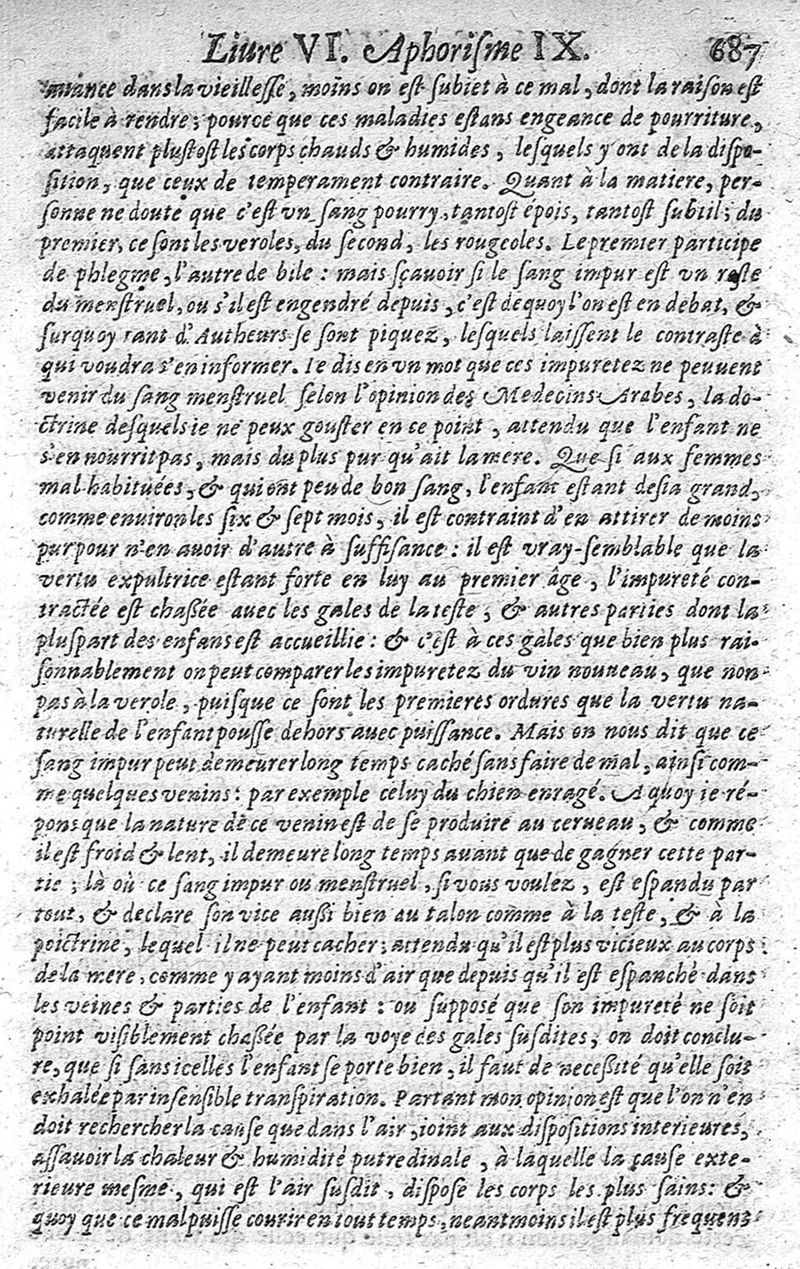 Liure VI. Aphorisme IX. 687
auance dans la vieillesse, moins on est subiet à ce mal, dont la raison est
facile à rendre; pource que ces maladies estans engeance de pourriture,
attaquent plustost les corps chauds & humides, lesquels y ont de la dispo-
sition, que ceux de temperament contraire. Quant à la matiere, per-
sonne ne doute que c'est vn sang pourry, tantost épois, tantost subtil; du
premier, ce sont les veroles, du second, les rougeoles. Le premier participe
de phlegme, l'autre de bile : mais sçauoir si le sang impur est vn reste
du menstruel, ou s'il est engendré depuis, c'est dequoy l'on est en debat, &
surquoy tant d'Autheurs se sont piquez, lesquels laissent le contraste à
qui voudra s'en informer. Ie dis en vn mot que ces impuretez ne peuuent
venir du sang menstruel selon l'opinion des Medecins Arabes, la do-
ctrine desquels ie ne peux gouster en ce point, attendu que l'enfant ne
s'en nourrit pas, mais du plus pur qu'ait la mere. Que si aux femmes
mal habituées, & qui ont peu de bon sang, l'enfant estant desia grand,
comme enuiron les six & sept mois, il est contraint d'en attirer de moins
pur pour n'en auoir d'autre à suffisance : il est vray-semblable que la
vertu expultrice estant forte en luy au premier âge, l'impureté con-
tractée est chassée auec les gales de la teste, & autres parties dont la
pluspart des enfans est accueillie : & c'est à ces gales que bien plus rai-
sonnablement on peut comparer les impuretez du vin nouueau, que non
pas à la verole, puisque ce sont les premieres ordures que la vertu na-
turelle de l'enfant pousse dehors auec puissance. Mais on nous dit que ce
sang impur peut demeurer long temps caché sans faire de mal, ainsi com-
me quelques venins : par exemple celuy du chien enragé. A quoy ie ré-
pons que la nature de ce venin est de se produire au cerueau, & comme
il est froid & lent, il demeure long temps auant que de gagner cette par-
tie ; là où ce sang impur ou menstruel, si vous voulez, est espandu par
tout, & declare son vice aussi bien au talon comme à la teste, & à la
poictrine, lequel il ne peut cacher; attendu qu'il est plus vicieux au corps
de la mere, comme y ayant moins d'air que depuis qu'il est espanché dans
les veines & parties de l'enfant : ou supposé que son impureté ne soit
point visiblement chassée par la voye des gales susdites, on doit conclu-
re, que si sans icelles l'enfant se porte bien, il faut de necessité qu'elle soit
exhalée par insensible transpiration. Partant mon opinion est que l'on n'en
doit rechercher la cause que dans l'air, ioint aux dispositions interieures,
assauoir la chaleur & humidité putredinale, à laquelle la cause exte-
rieure mesme, qui est l'air susdit, dispose les corps les plus sains: &
quoy que ce mal puisse courir en tout temps, neantmoins il est plus frequent